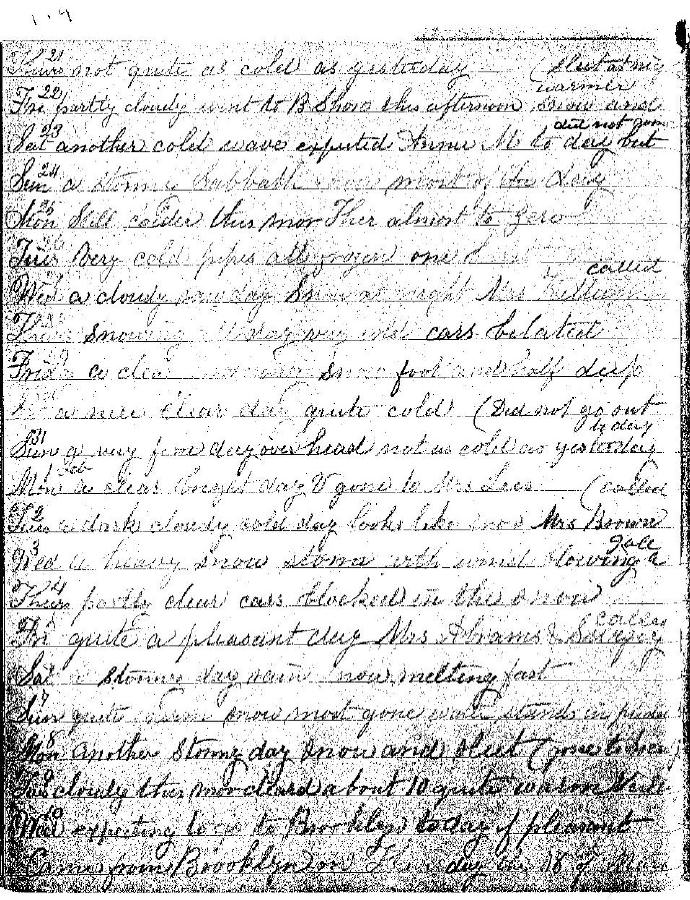 Thurs 21 not quite as cold as yesterday (sleet at
Fri 22 partly cloudy went to B Shore this afternoon snow and
warmer
Sat 23 another cold wave expected Annie M to day but
did not
Sun 24 a stormy Sabbath most of the day
Mon 25 Still colder this mor Ther almost to zero
Tues very cold pipes all frozen one
Wed a cloudy day Snow at night Mrs
called
Thurs snowing day cars belated
Frid a clear snow foot and half deep
a nice clear day quite cold (Did not go out
to day
Sun 31 a very fine day over head not as cold as yesterday
Mon 1 Feb a clear bright day V gone to Mrs Lees (called
Tues 2 a dark cloudy cold day looks like snow Mrs Brown
Wed 3 a heavy snow storm with wind blowing a
gale
Thurs 4 partly clear cars blocked in the snow
Fri quite a pleasant day Mrs Abrams &
called
Sat a stormy day rain snow melting fast
Sun 7 quite warm snow most gone water stands in
Mon 8 another stormy day snow and sleet (gone to
Tues 9 cloudy this mor cleard about 10 quite warm
Wed 10 expecting to go to Brooklyn today if pleasant
Came from Broooklyn on day the 18 of